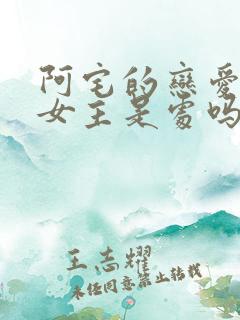 阿宅的戀愛
女主是處吗
王志耀
未经同意禁止转载